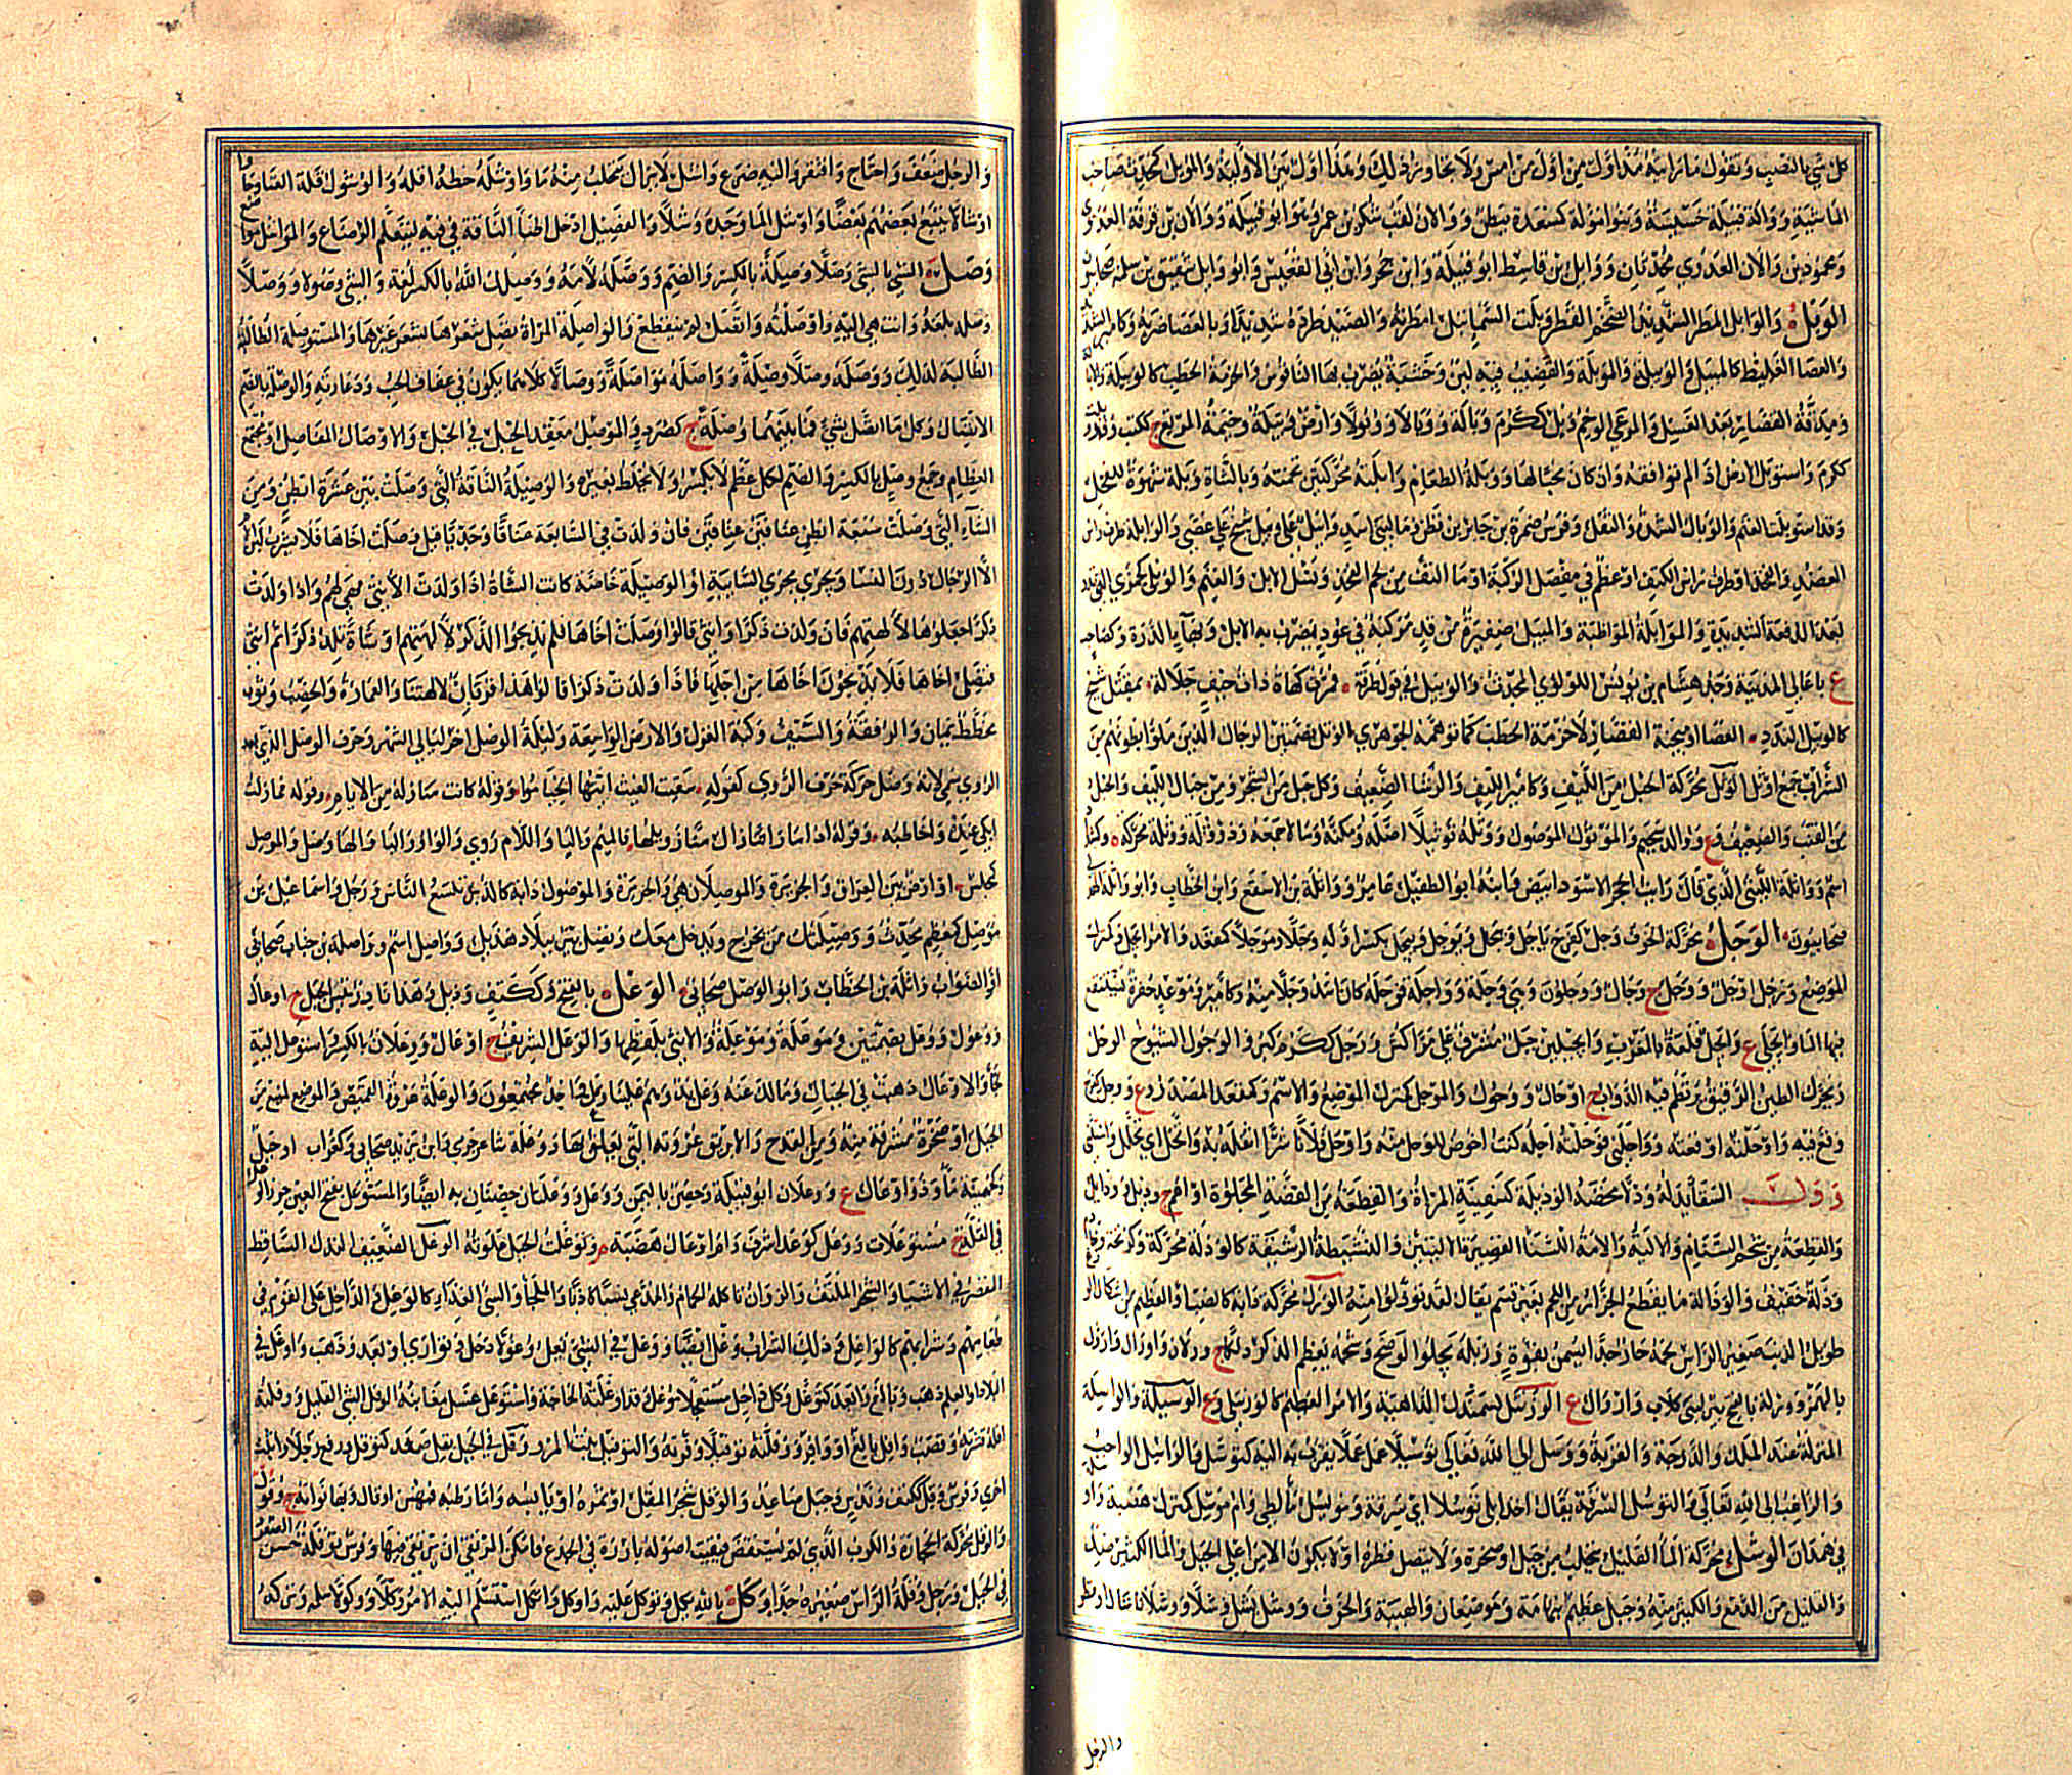 كل شئ بالنصب وتقول ما رايته مذ اول من اول من امس ولا يجاوز ذلك وهذا اول بين الاولية والموبل كمحدث صاحب
الماشية ووالة قبيلة خسيسة وبنو موءلة كمسعدة بطن ووالان لقب شكر بن عمرو بنوابو قبيلة ووالان بن قرفة العدوي
ومحمود بن والان العدوي محدثان ووايل بن قاسط ابو قبيلة وابن حجر وابن ابي القعيس وابو وايل شقيق بن سلمة صحابيون
الوبل والوابل المطر الشديد الضخم القطر وبلت السماء تبل امطرته والصيد طرده شديدا وبالعصا ضربه وكامير الشديد
والعصا الغليظة كالميبل والوبيلة والموبلة والقضيب فيه لين وخشبة يضرب بها الناقوس والحزمة من الحطب كالوبيلة
ومدقة القصار بعد الغسيل والمرعي الوخيم وبل ككرم وبالة ووبالا ووبولا وارض وبيلة وخيمة المرتع ج ككتب وقد وبلت
ككرم واستوبل الارض اذا لم توافقه وان كان محبا لها ووبلة الطعام وابلته محركتين تخمته وبالشاة وبلة شهوة للفحل
وقد استوبلت الغنم والوبال الشدة والثقل وفرس ضمرة بن جابر بن قطن وما لبني اسد وابيل على وبيل شيخ على عصى والوابلة طرف راس
العضد والفخذ او طرف راس الكتف او عظم في مفصل الركبة او ما التف من لحم الفخذ ونسل الابل والغنم والوبلي كجمزي التي تدر
بعد الدفعة الشديدة والموابلة المواظبة والميبل ضفيرة من قد مركبة في عود يضرب به الابل وبهاء الدرة وكصاحب
ع باعالي المدينة وجد هشام بن يونس اللولوي المحدث والوبيل في قول طرفة فمرت كهاة ذات خيف جلالة عقيلة شيخ
كالوبيل اليلندد العصا او ميجنة القصار لا حزمة الحطب كما توهمه الجوهري الوتل بضمتين الرجال الذين ملؤا بطونهم من
الشراب جمع اوتل الوثل محركة الحبل من الليف وكامير الليف والرشا الضعيف وكل حبل من الشجر ومن حبال الليف والخلق
من القنب والضعيف وع ووالد سحيم والموثول الموصول ووثله توثيلا اصله ومكنه ومالا جمعه وذو وثلة ووثلة محركة
اسم وواثلة الليثي الذي قال رايت الحجر الاسود ابيض وابنه ابو الطفيل عامر وواثلة بن الاسقع وابن الخطاب وابو واثلة الهذلي
صحابيون الوجل محركة الخوف وجل كفرح ياجل وييجل ويوجل وييجل بكسر اوله وجلا وموجلا كمقعد والامر ايجل وكمنزل
الموضع ورجل اوجل ووجل ج وجال ووجلون وهي وجلة وواجله فوجله كان اشد وجلا منه وكامير وموعد حفرة يستنقع
فيها الما وايجلي ع وايجل قلعة بالمغرب وايجلين جبل مشرف على مراكش ووجل ككرم كبر والوجول الشيوخ الوحل
ويحرك الطين الرقيق ترتطم فيه الدواب ج اوحال ووحول والموحل كمنزل الموضع والاسم وكمقعد المصدر وع ووحل كفرح
وقع فيه واوحلته اوقعته وواحلني فوحلته احله كنت اخوض للوحل منه واوحل فلانا شرا اثقله به واتحل اي تحلل واستثنى
ودل السقا يدله ودلا مخضه الوذيلة كسفينة المراة والقطعة من الفضة المجلوة او اعم ج وذيل ووذايل
والقطعة من شحم السنام والالية والامة اللسنا القصيرة الاليتين والنشيطة الرشيقة كالوذلة محركة وكزنخة وخادم
وذلة خفيف والوذالة ما يقطع الجزار من اللحم بغير قسم يقال لقد توذلوا منه الورل محركة دابة كالضب او العظيم من اشكال الوزغ
طويل الذنب صغير الراس لحمه حار جدا يسمن بقوة وزبله يجلو الوضح وشحمه يعظم الذكر دلكا ج ورلان واورال وارول
بالهمز وورلة بالفتح بئر لبني كلاب واورال ع الورنتل كسمندل الداهية والامر العظيم كالورنتلى وع الوسيلة والواسلة
المنزلة عند الملك والدرجة والقربة ووسل الى الله تعالى توسيلا عمل عملا يقرب به اليه كتوسل والواسل الواجب
والراغب الى الله تعالى والتوسل السرقة يقال اخذ ابلي توسلا اي سرقة وموسل ما لطي وام موسل كمنزل هضبة واد
في همدان الوشل محركة الماء القليل يتحلب من جبل او صخرة ولا يتصل قطره او لا يكون الا من اعلى الجبل والماء الكثير ضد
والقليل من الدمع والكثير منه وجبل عظيم بتهامة وموضعان والهيبة والخوف ووشل يشل وشلا ووشلانا سال او قطر
والرجل
والرجل ضعف واحتاج وافتقر واليه ضرع واشل لا يزال يتحلب منه ما واوشل حظه اقله والوشول قلة الغنا وجاوا
اوشالا يتبع بعضهم بعضا واوشل الما وجده وشلا والفصيل ادخل اطبا الناقة في فيه ليتعلم الرضاع والمواشل ع
وصل الشي بالشي وصلا وصلة بالكسر والضم ووصله لامه ووصلك الله بالكسر لغة والشي وصولا ووصلا
وصله بلغه وانتهى اليه واوصلته واتصل لم ينقطع والواصلة المراة تصل شعرها بشعر غيرها والمستوصلة الطالبة
الطالبة لذلك ووصله وصلا وصلة وواصله مواصلة ووصالا كلاهما يكون في عفاف الحب ودعارته والوصلة بالضم
الاتصال وكل ما اتصل بشئ فما بينهما وصلة ج كصرد والموصل معقد الحبل في الحبل والاوصال المفاصل او مجتمع
العظام وجمع وصل بالكسر والضم لكل عظم لا يكسر ولا يختلط بغيره والوصيلة الناقة التي وصلت بين عشرة ابطن ومن
الشاء التي وصلت سبعة ابطن عناقين عناقين فان ولدت في السابعة عناقا وجديا قيل وصلت اخاها فلا يشرب لبن الام
الا الرجال دون النسا وتجري مجرى السايبة او الوصيلة خاصة كانت الشاة اذا ولدت الانثى فهي لهم واذا ولدت
ذكرا جعلوها لالهتهم فان ولدت ذكرا وانثى قالوا وصلت اخاها فلم يذبحوا الذكر لالهتهم او شاة تلد ذكرا ثم انثى
فتصل اخاها فلا يذبحون اخاها من اجلها فاذا ولدت ذكرا قالوا هذا قربان لالهتنا والعمارة والخصب وثوب
مخطط يمان والرفقة والسيف وكبة الغزل والارض الواسعة وليلة الوصل اخر ليالي الشهر وحرف الوصل الذي بعد
الروي سمي لانه وصل حركة حرف الروي كقوله سقيت الغيث ايتها الخيامو وقوله كانت مباركة من الايام وقوله فما زلت
ابكي عنده واخاطبه وقوله
كمجلس د او ارض بين العراق والجزيرة والموصلان هي والجزيرة والموصول دابة كالدبر تلسع الناس ورجل واسماعيل بن
موصل كمعظم محدث ووصيلك من يخرج ويدخل معك وتصيل بئر ببلاد هذيل وواصل اسم وواصلة بن جناب صحابي
او الصواب واثلة بن الخطاب وابو الوصل صحابي الوعل بالفتح وككتف ودئل وهذا نادر تيس الجبل ج اوعال
ووعول ووعل بضمتين وموعلة ووعلة والانثى بلفظها والوعل الشريف ج اوعال ووعلان بالكسر واستوعل اليه
لجأ والاوعال ذهبت في الجبال وما لك عنه وعل بد وهم علينا وعل واحد مجتمعون والوعلة عروة القميص والموضع المنيع من
الجبل او صخرة مشرفة منه ومن القدح والابريق عروته التي يعلق بها ووعلة شاعر جرمي وابن يزيد صحابي وكغراب جبل
وكجهينة ما وذو اوعال ع ووعلان ابو قبيلة وحصن باليمن ووعل ووعلتان حصنان به ايضا والمستوعل بفتح العين حرز الوعل
في القلة ج مستوعلات ووعل كوعد اشرف وام اوعال هضبة وتوعلت الجبل علوته الوغل الضعيف النذل الساقط
المقصر في الاشياء والشجر الملتف والزوان ياكله الحمام والمدعي نسبا كاذبا والملجأ والسيئ الغذاء كالوغل والداخل على القوم في
طعامهم وشرابهم كالواغل وذلك الشراب وغل ايضا ووغل في الشئ يغل وغولا دخل وتوارى او بعد وذهب واوغل في
البلاد والعلم ذهب وبالغ وابعد كتوغل وكل داخل مستعجلا موغل وقد اوغلته الحاجة واستوغل غسل مغابنه الوفل الشي القليل ووفلته
افله قشرته وقصب وافل بالغ او وافر ووفلته توفيلا وفرته والتوفيل نبت المرو ووقل في الجبل يقل صعد كتوقل ورفع رجلا واثبت
اخرى وفرس وقل ككتف وندس وجبل صاعد والوقل شجر المقل او ثمره او يابسه واما رطبه فبهش ج اوقال وبهاء نواته ج وقول
والوقل محركة الحجارة والكرب الذي لم يستقصَ فبقيت اصوله بارزة في الجذع فامكن المرتقي ان يرتقي فيها وفرس توقلة حسن الصعود
في الجبل ورجل وقلة الراس صغيره جدا وكل بالله يكل وتوكل عليه واوكل واتكل استسلم اليه ووكل اليه الامر وكلا ووكولا سلمه وتركه